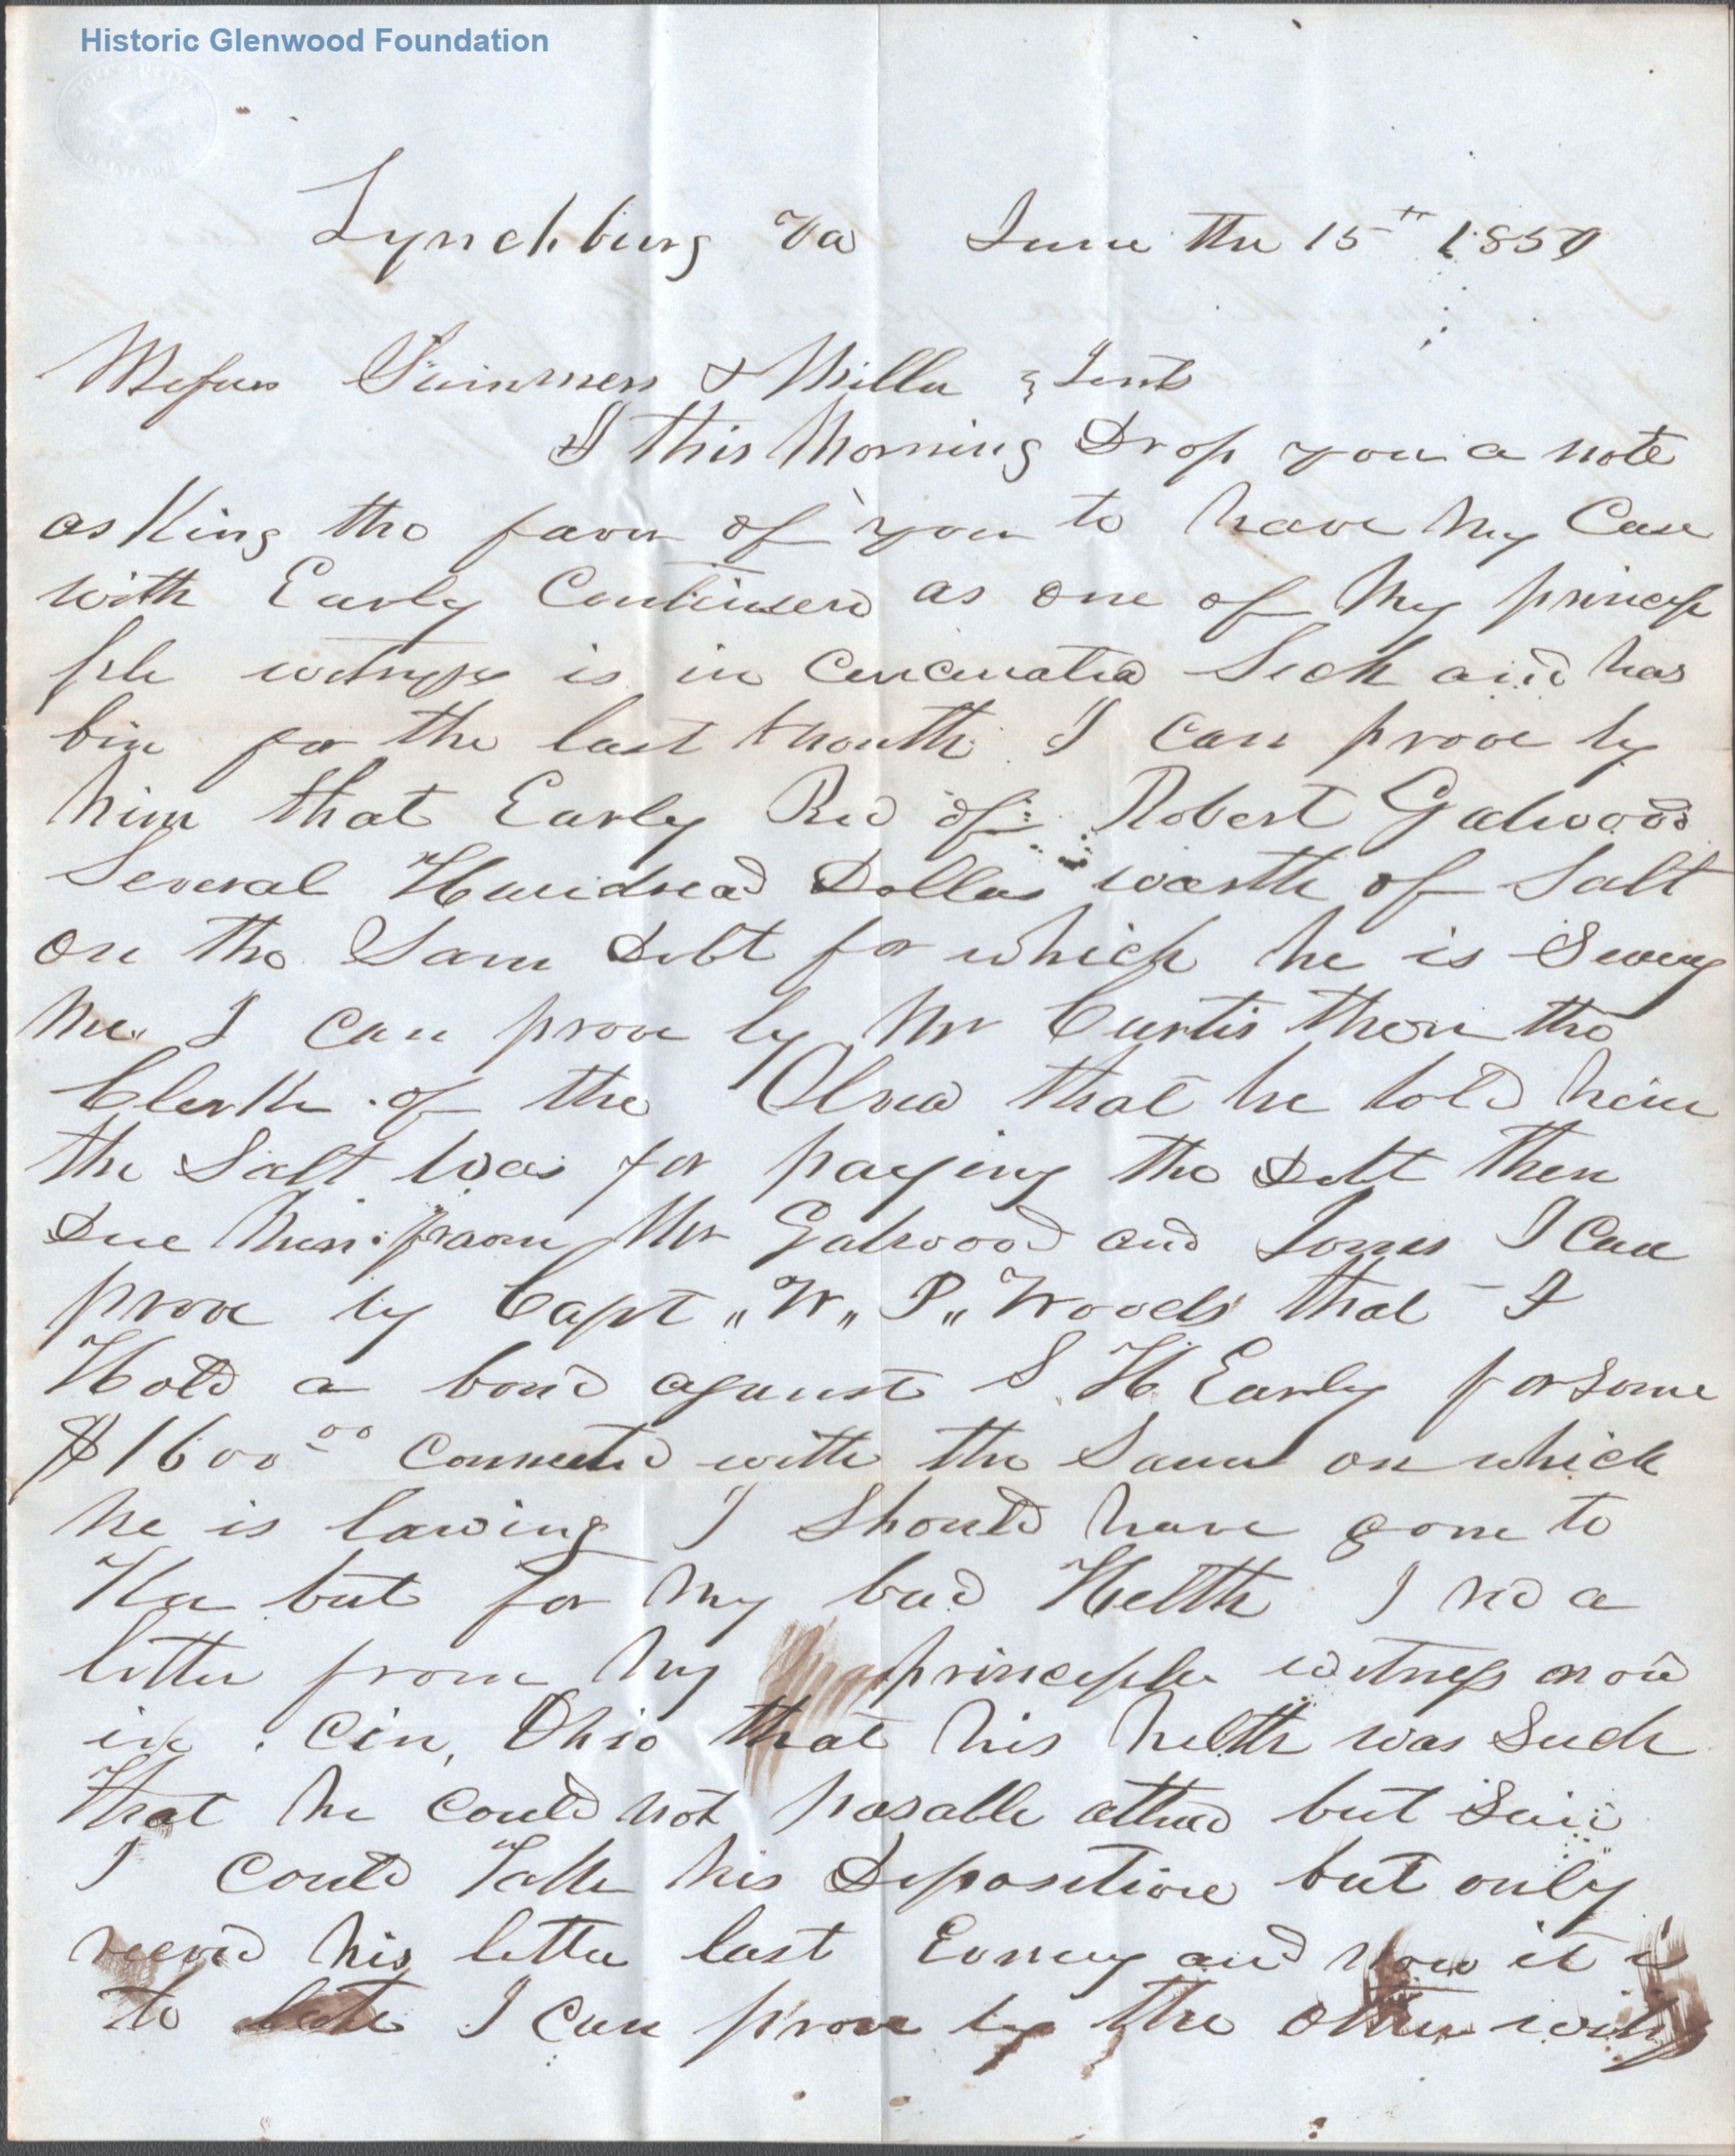 Historic Glenwood Foundation
Lynchburg Va June the 15th 185
Messrs Summers & Miller Gents
I this Morning Drop you a note
asking the favor of you to have my Case
with Early Continued as one of My princip
ple witness is in Sick and has
bin for the last Month I can prove by
him that Early Recd of Robert Gatwood
Several Hundread Dollars worth of Salt
on the Sam Debt for which he is Sueing
me I can prove by Mr Curtis then the
Clerke of the that he told him
the Salt was for paying the Debt then
Due him from Mr Gatwood and Jones I Can
prove by Capt "W" P" Woods that I
Hold a bond against S H Early for some
$1600 00 Connected with the Same on which
he is lawing I Should have gone to
Ka but for My bad Helth I recd a
letter from My principle witness now
in Cin, Ohio that his helth was Such
that he could not posable attend but Said
I could Take his Deposition but only
recevd his letter last Evning and Now it is
to late I can prove by the other witness